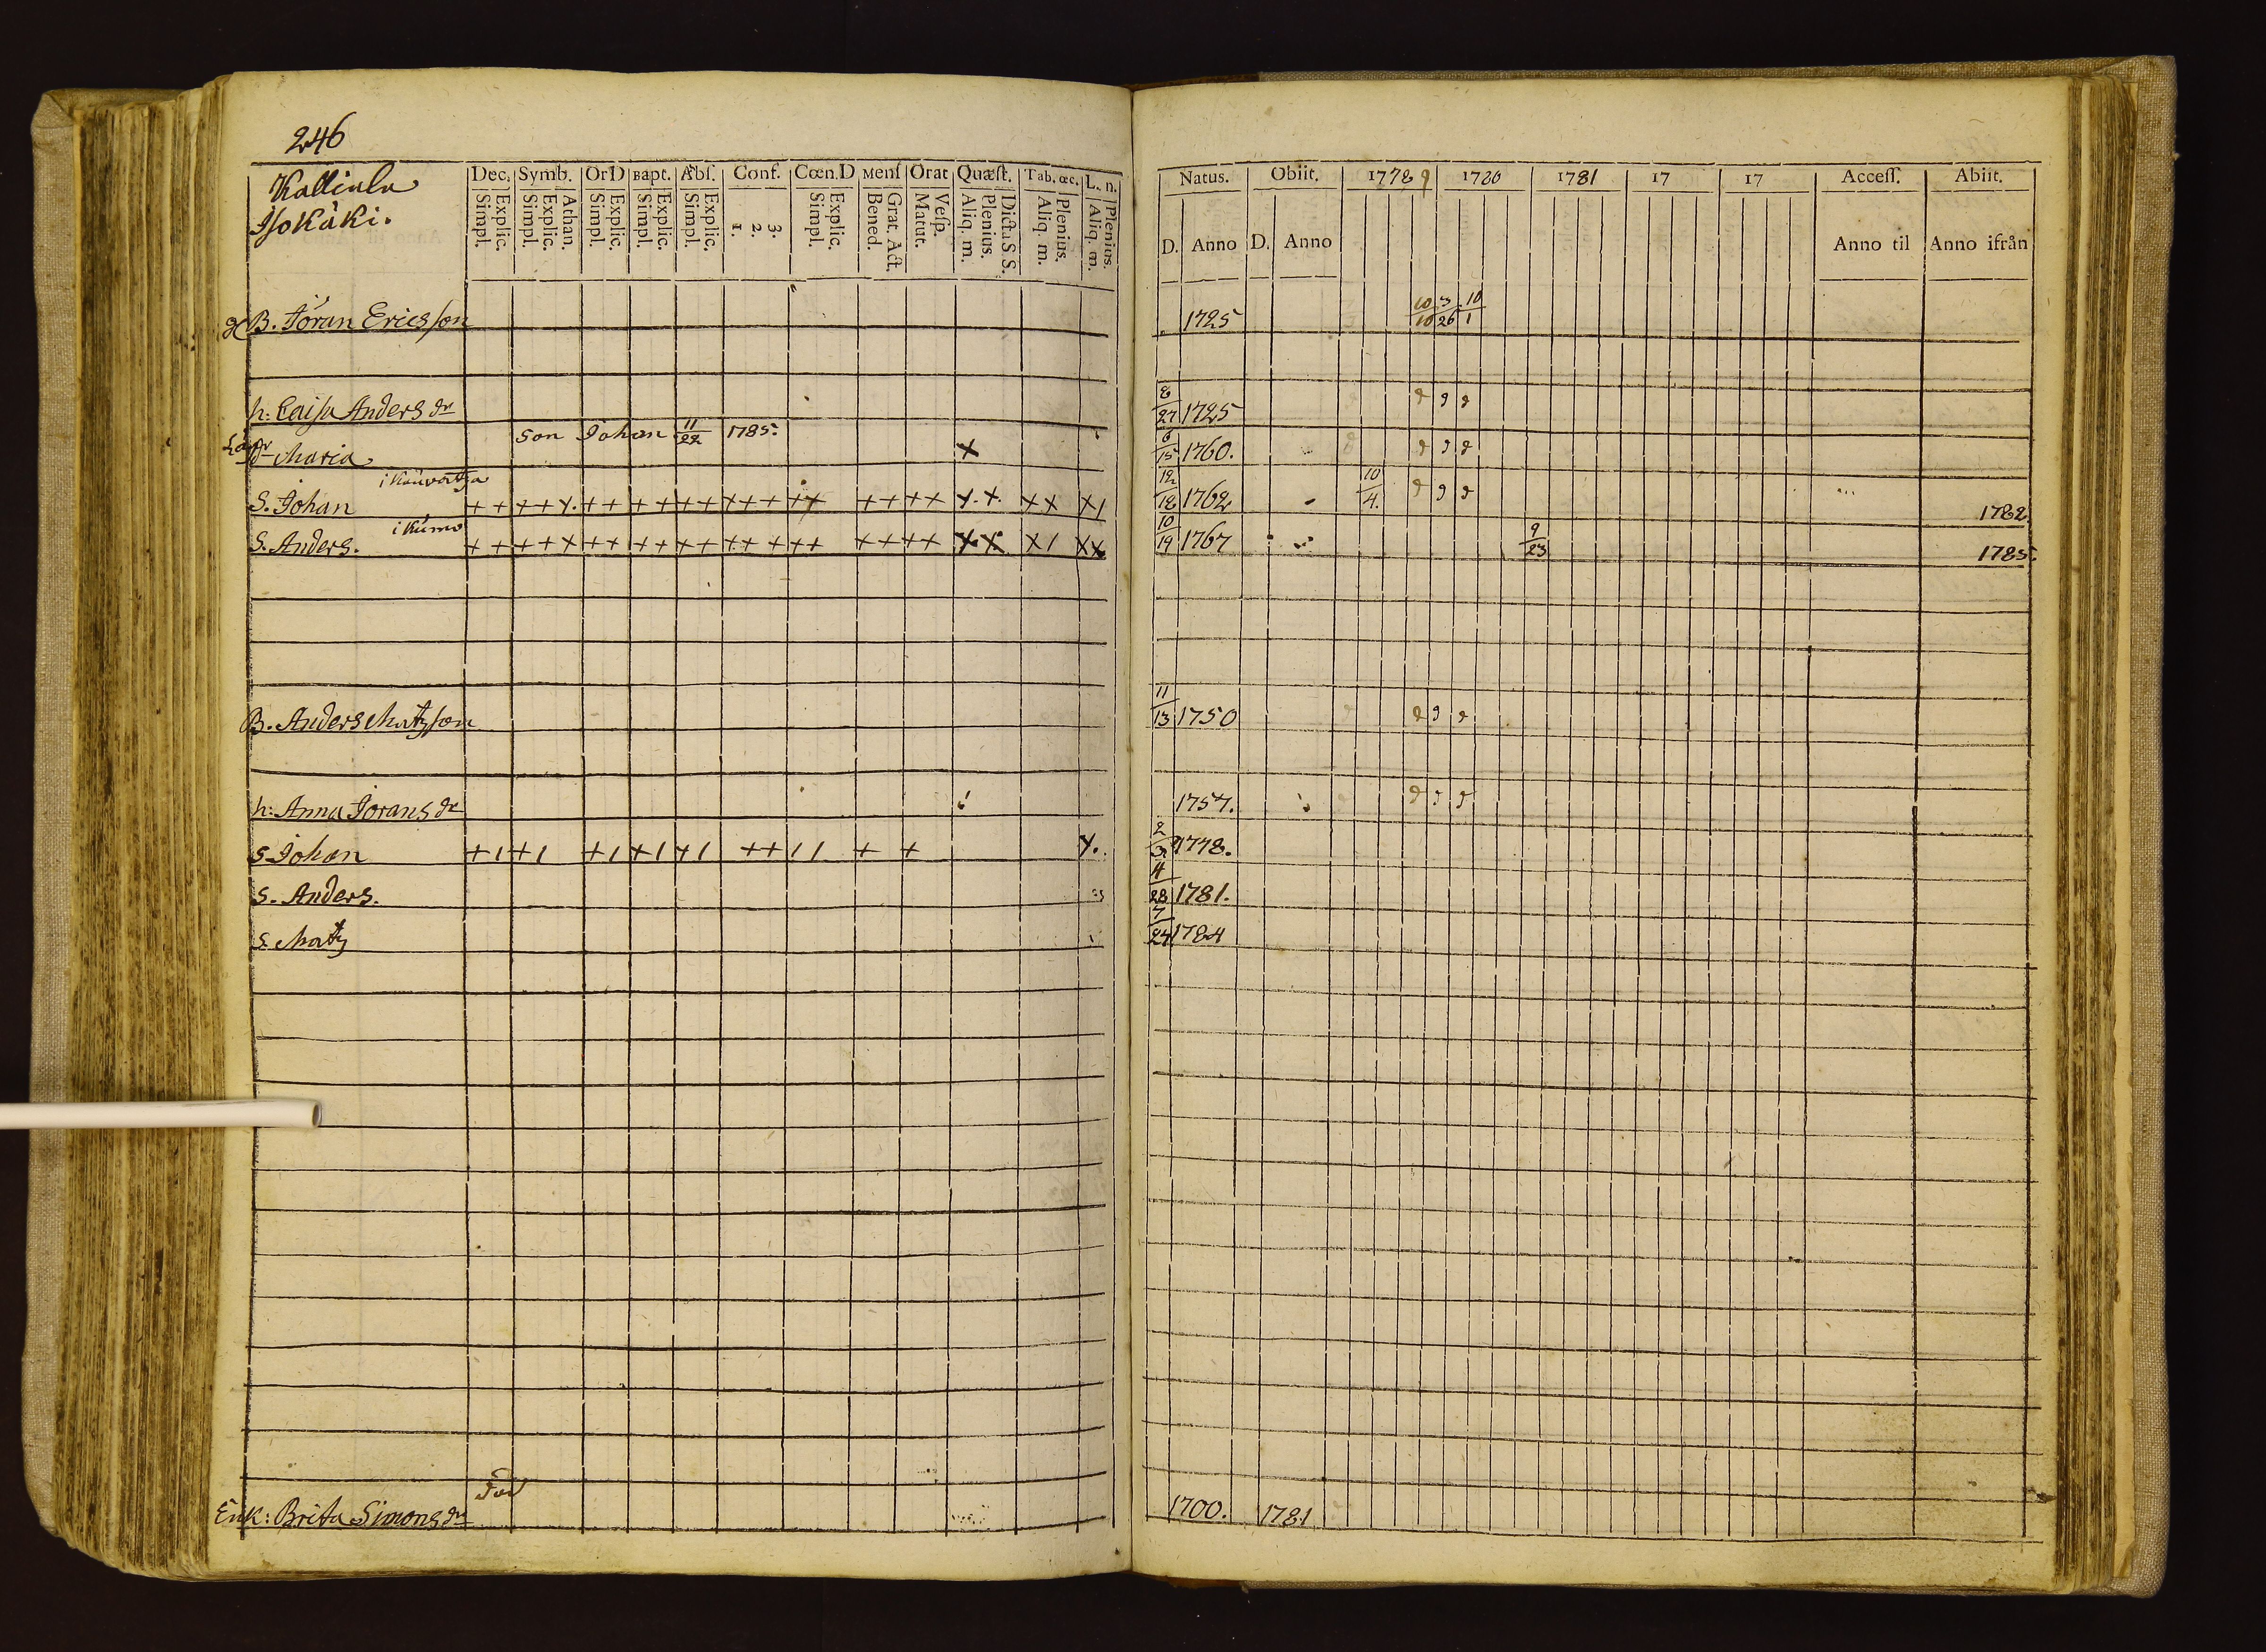 246
Kallialu
Isokäki.
Dec. Symb. OrD Bapt. Abſ. Conf. Cœn.D Menſ Orat Quæſt. Tab. œc. L. n.
Simpl. Explic. Simpl. Explic. Athan. Simpl. Explic. Simpl. Explic. Simpl. Explic. 1. 2. 3. Simpl. Explic. Bened. Grat. Act. Matut. Veſp. Aliq. m. Plenius. Dicta S S. Aliq. m. Plenius. Aliq. m. Plenius.
Natus. Obiit. 1778 9 1780 1781 17 17 Acceſſ. Abiit.
D. Anno D. Anno Anno til Anno ifrån
B. Jöran Ericsson 1725 10/10 3/26 10/1
h: Caisa Anders dr 8/27 1725
son Johan 11/22 1785.
dr Maria x 6/15 1760.
S. Johan + + + + x . + + + + + + + + + + + + + + + x. x. x x x / 12/18 1762 10/4. 1782.
i Kumo
S. Anders. + + + + x + + + + + + + + + + + + + + + x x x / x x 10/19 1767 9/23 1785.
B. Anders Matzson 11/13 1750
h: Anna Jörans dr 1757.
s. Johan + / + / + / + / + / + + / / + + x. 2/3 1778.
s. Anders. 4/28 1781.
s. Matz 7/24 1784
Enk: Brita Simons dr 1700. 1781